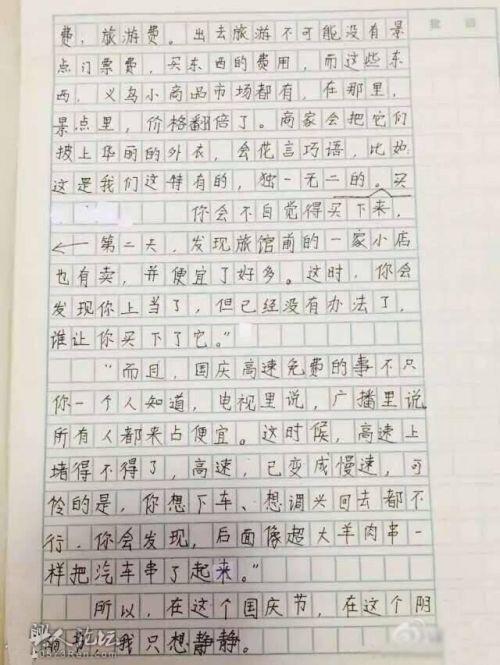 批语
费，旅游费。出去旅游不可能没有景
点门票费，买东西的费用，而这些东
西，义乌小商品市场都有，在那里，
景点里，价格翻倍了。商家会把它们
披上华丽的外衣，会花言巧语，比如
这是我们这特有的，独一无二的。买
你会不自觉得买下来，
←第二天，发现旅馆前的一家小店
也有卖，并便宜了好多。这时，你会
发现你上当了，但已经没有办法了，
谁让你买下了它。”
“而且，国庆高速免费的事不只
你一个人知道，电视里说，广播里说
所有人都来占便宜。这时候，高速上
堵得不得了，高速，已变成慢速，可
怜的是，你想下车、想调头回去都不
行，你会发现，后面像超大羊肉串一
样把汽车串了起来。”
所以，在这个国庆节，在这个阴
我只想静静。
论坛